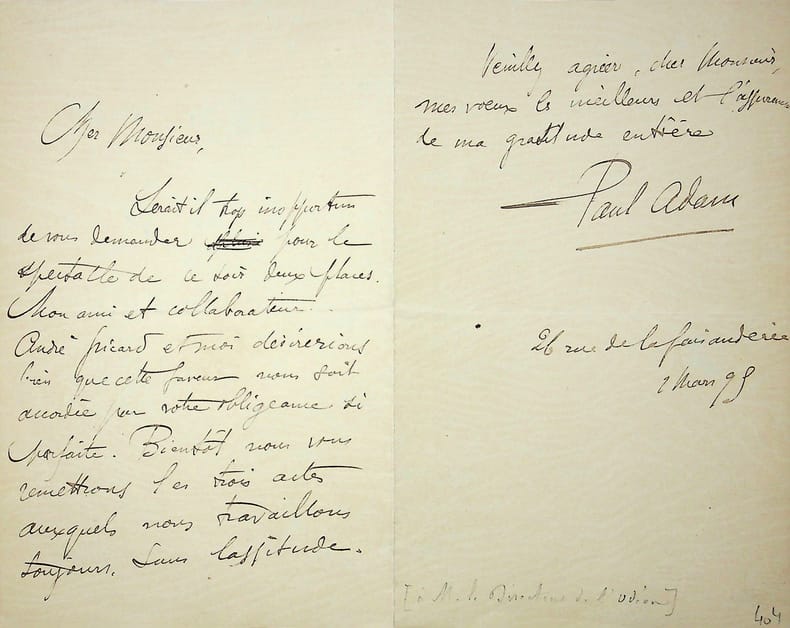 Cher Monsieur,
Serait il trop inopportun
de vous demander pour le
spectacle de ce soir deux places.
Mon ami et collaborateur
André Picard et moi désirerions
bien que cette faveur nous soit
accordée par votre obligeance si
parfaite. Bientôt nous vous
remettrons les trois actes
auxquels nous travaillons
toujours, sans lassitude.
Veuillez agréer, cher Monsieur,
mes vœux les meilleurs et l'assurance
de ma gratitude entière
Paul Adam
26 rue de la faisanderie
Mars 95
[à M. le Directeur de l'Odéon]
404